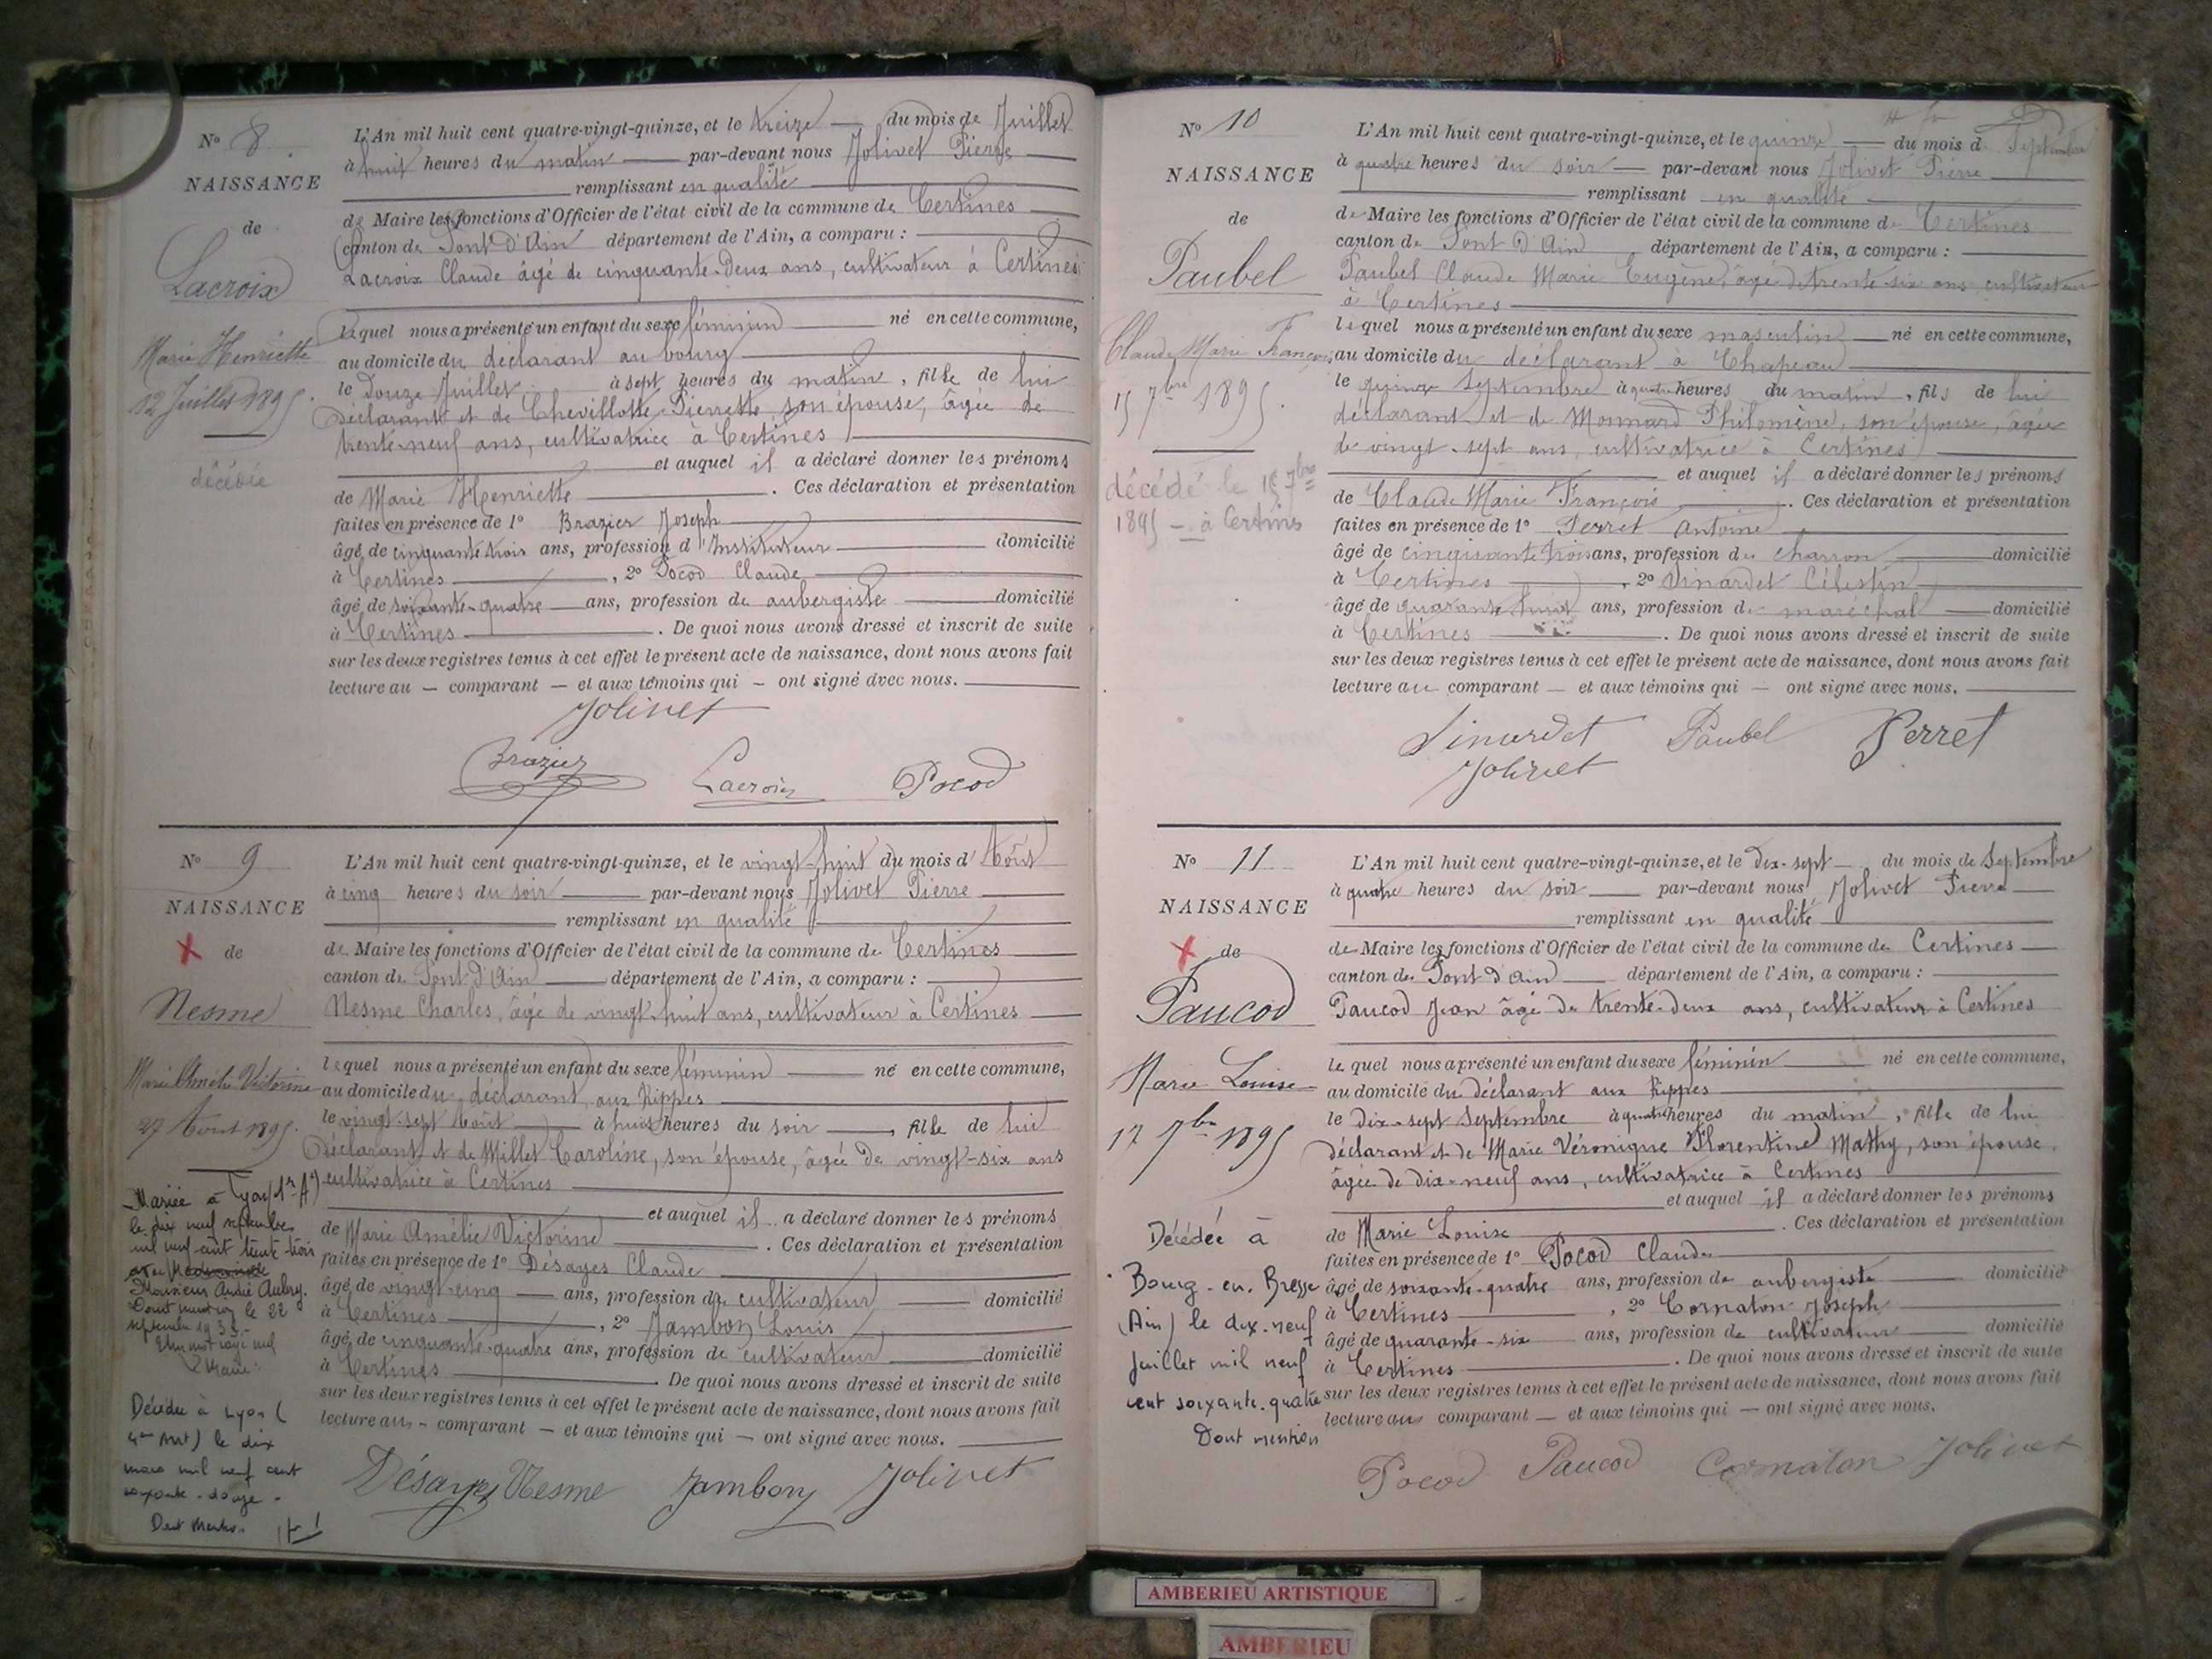 N° 8
NAISSANCE
de
Lacroix
Marie Henriette
12 Juillet 1895.
décédée
L'An mil huit cent quatre-vingt-quinze, et le treize — du mois de Juillet
à huit heures du matin — par-devant nous Jolivet Pierre
remplissant en qualité
de Maire les fonctions d'Officier de l'état civil de la commune de Certines
canton de Pont d'Ain département de l'Ain, a comparu :
Lacroix Claude âgé de cinquante-deux ans, cultivateur à Certines
lequel nous a présenté un enfant du sexe féminin — né en cette commune,
au domicile du déclarant au bourg
le douze Juillet à sept heures du matin, fille de lui
déclarant et de Chevillotte Pierrette son épouse, âgée de
trente-neuf ans, cultivatrice à Certines
et auquel il a déclaré donner les prénoms
de Marie Henriette. Ces déclaration et présentation
faites en présence de 1° Brazier Joseph
âgé de cinquante trois ans, profession d'Instituteur — domicilié
à Certines, 2° Pocod Claude
âgé de soixante-quatre ans, profession de aubergiste — domicilié
à Certines. De quoi nous avons dressé et inscrit de suite
sur les deux registres tenus à cet effet le présent acte de naissance, dont nous avons fait
lecture au — comparant — et aux témoins qui — ont signé avec nous.
Jolivet
Brazier Lacroix Pocod
N° 9
NAISSANCE
de
Nesme
Marie Amélie Victorine
27 Aout 1895.
Mariée à Lyon (1er At)
le dix neuf septembre
mil neuf cent trente-trois
avec
Monsieur André Aubry.
Dont mention le 22
septembre 1933.
mot rayé nul
Décédée à Lyon (
4me Arrt) le dix
mars mil neuf cent
soixante-douze.
Dont Mention.
L'An mil huit cent quatre-vingt-quinze, et le vingt-huit du mois d'Août
à cinq heures du soir — par-devant nous Jolivet Pierre
remplissant en qualité
de Maire les fonctions d'Officier de l'état civil de la commune de Certines
canton de Pont d'Ain — département de l'Ain, a comparu :
Nesme Charles, âgé de vingt-huit ans, cultivateur à Certines
lequel nous a présenté un enfant du sexe féminin — né en cette commune,
au domicile du déclarant aux Rippes
le vingt-sept Août — à huit heures du soir —, fille de lui
déclarant et de Millet Caroline, son épouse, âgée de vingt-six ans
cultivatrice à Certines
et auquel il a déclaré donner les prénoms
de Marie Amélie Victorine. Ces déclaration et présentation
faites en présence de 1° Désayes Claude
âgé de vingt-cinq — ans, profession de cultivateur — domicilié
à Certines, 2° Jambon Louis
âgé de cinquante-quatre ans, profession de cultivateur — domicilié
à Certines. De quoi nous avons dressé et inscrit de suite
sur les deux registres tenus à cet effet le présent acte de naissance, dont nous avons fait
lecture au — comparant — et aux témoins qui — ont signé avec nous.
Désayes Nesme Jambon Jolivet
N° 10
NAISSANCE
de
Paubel
Claude Marie François
15 7bre 1895.
décédé le 15 7bre
1895 — à Certines
L'An mil huit cent quatre-vingt-quinze, et le quinze — du mois d Septembre
à quatre heures du soir — par-devant nous Jolivet Pierre
remplissant en qualité
de Maire les fonctions d'Officier de l'état civil de la commune de Certines
canton de Pont d'Ain département de l'Ain, a comparu :
Paubel Claude Marie Eugène, âgé de trente-six ans, cultivateur
à Certines
lequel nous a présenté un enfant du sexe masculin — né en cette commune,
au domicile du déclarant à Chapeau
le quinze Septembre à quatre heures du matin, fils de lui
déclarant et de Monnard Philomène, son épouse, âgée
de vingt-sept ans, cultivatrice à Certines
et auquel il a déclaré donner les prénoms
de Claude Marie François. Ces déclaration et présentation
faites en présence de 1° Perret Antoine
âgé de cinquante trois ans, profession de charron — domicilié
à Certines, 2° Vinardet Célestin
âgé de quarante huit ans, profession de maréchal — domicilié
à Certines. De quoi nous avons dressé et inscrit de suite
sur les deux registres tenus à cet effet le présent acte de naissance, dont nous avons fait
lecture au comparant — et aux témoins qui — ont signé avec nous.
Vinardet Paubel Perret
Jolivet
N° 11
NAISSANCE
de
Paucod
Marie Louise
17 7bre 1895
Décédée à
Bourg-en-Bresse
(Ain) le dix-neuf
Juillet mil neuf
cent soixante-quatre
Dont mention
L'An mil huit cent quatre-vingt-quinze, et le dix-sept — du mois de Septembre
à quatre heures du soir — par-devant nous Jolivet Pierre
remplissant en qualité
de Maire les fonctions d'Officier de l'état civil de la commune de Certines
canton de Pont d'Ain — département de l'Ain, a comparu :
Paucod Jean âgé de trente-deux ans, cultivateur à Certines
lequel nous a présenté un enfant du sexe féminin — né en cette commune,
au domicile du déclarant aux Rippes
le dix-sept Septembre à quatre heures du matin, fille de lui
déclarant et de Marie Véronique Florentine Mathy, son épouse,
âgée de dix-neuf ans, cultivatrice à Certines
et auquel il a déclaré donner les prénoms
de Marie Louise. Ces déclaration et présentation
faites en présence de 1° Pocod Claude
âgé de soixante-quatre ans, profession de aubergiste — domicilié
à Certines, 2° Cornaton Joseph
âgé de quarante-six ans, profession de cultivateur — domicilié
à Certines. De quoi nous avons dressé et inscrit de suite
sur les deux registres tenus à cet effet le présent acte de naissance, dont nous avons fait
lecture au comparant — et aux témoins qui — ont signé avec nous.
Pocod Paucod Cornaton Jolivet
AMBERIEU ARTISTIQUE
AMBERIEU